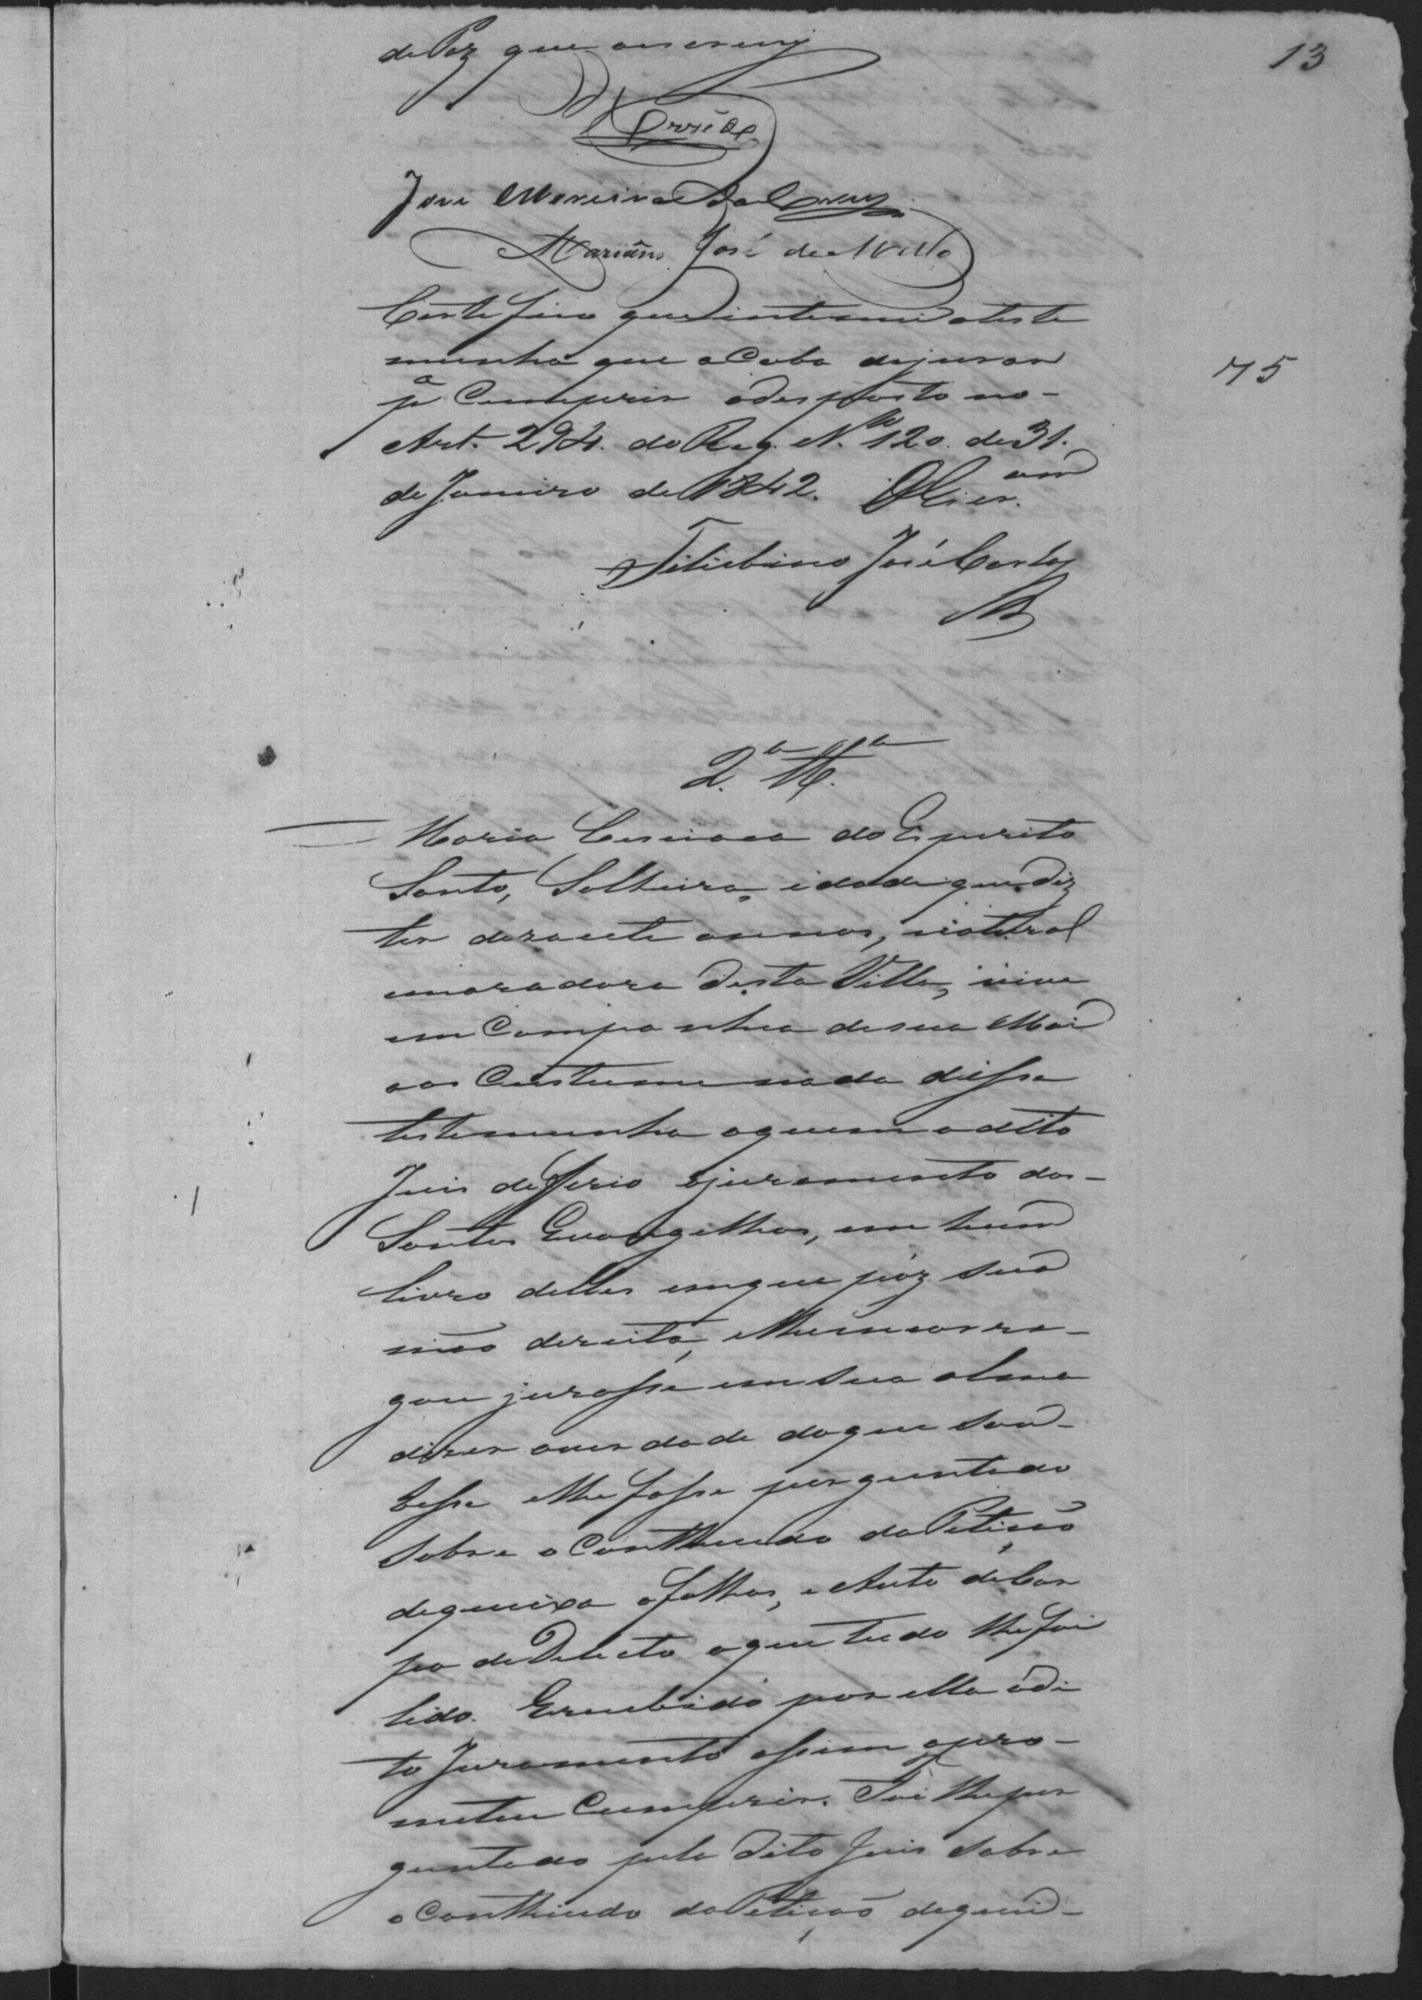 13
de Paz que o escrevy
Corrêa
José Moreira da Cruz
Mariano José de Mello
Certifico que intimei a teste
munha que acaba dejurar
pª Cumprir odesposto no-
Art. 294. do Reg. N.º 120. de 31.
de Janeiro de 1842. O Escr.am
José Carlos
75
2.ª Tt.ª
Maria do Espirito
Santo, Solteira, idade que diz
ter desasete annos, natural
moradora desta Villa, vive
em Companhia desua Mai
aos Custume nada disse
testemunha aquem o dito
Juis defferio ojuramento dos-
Santos Evangelhos, em hum
livro delles emque pôz sua
mão dereita, elhe encarre-
gou jurasse em sua alma
diser averdade doque sou-
besse elhe fosse perguntado
sobre o Conthiudo da Petição
dequeixa afolhas, e Auto de Cor
po de Delicto oque tudo lhefoi
lido. Erecebido por ella o di
to Juramento assim opro-
meteu Cumprir. Foi lhe per
guntado pelo dito Juis sobre
o Conthiudo da Petição dequei-